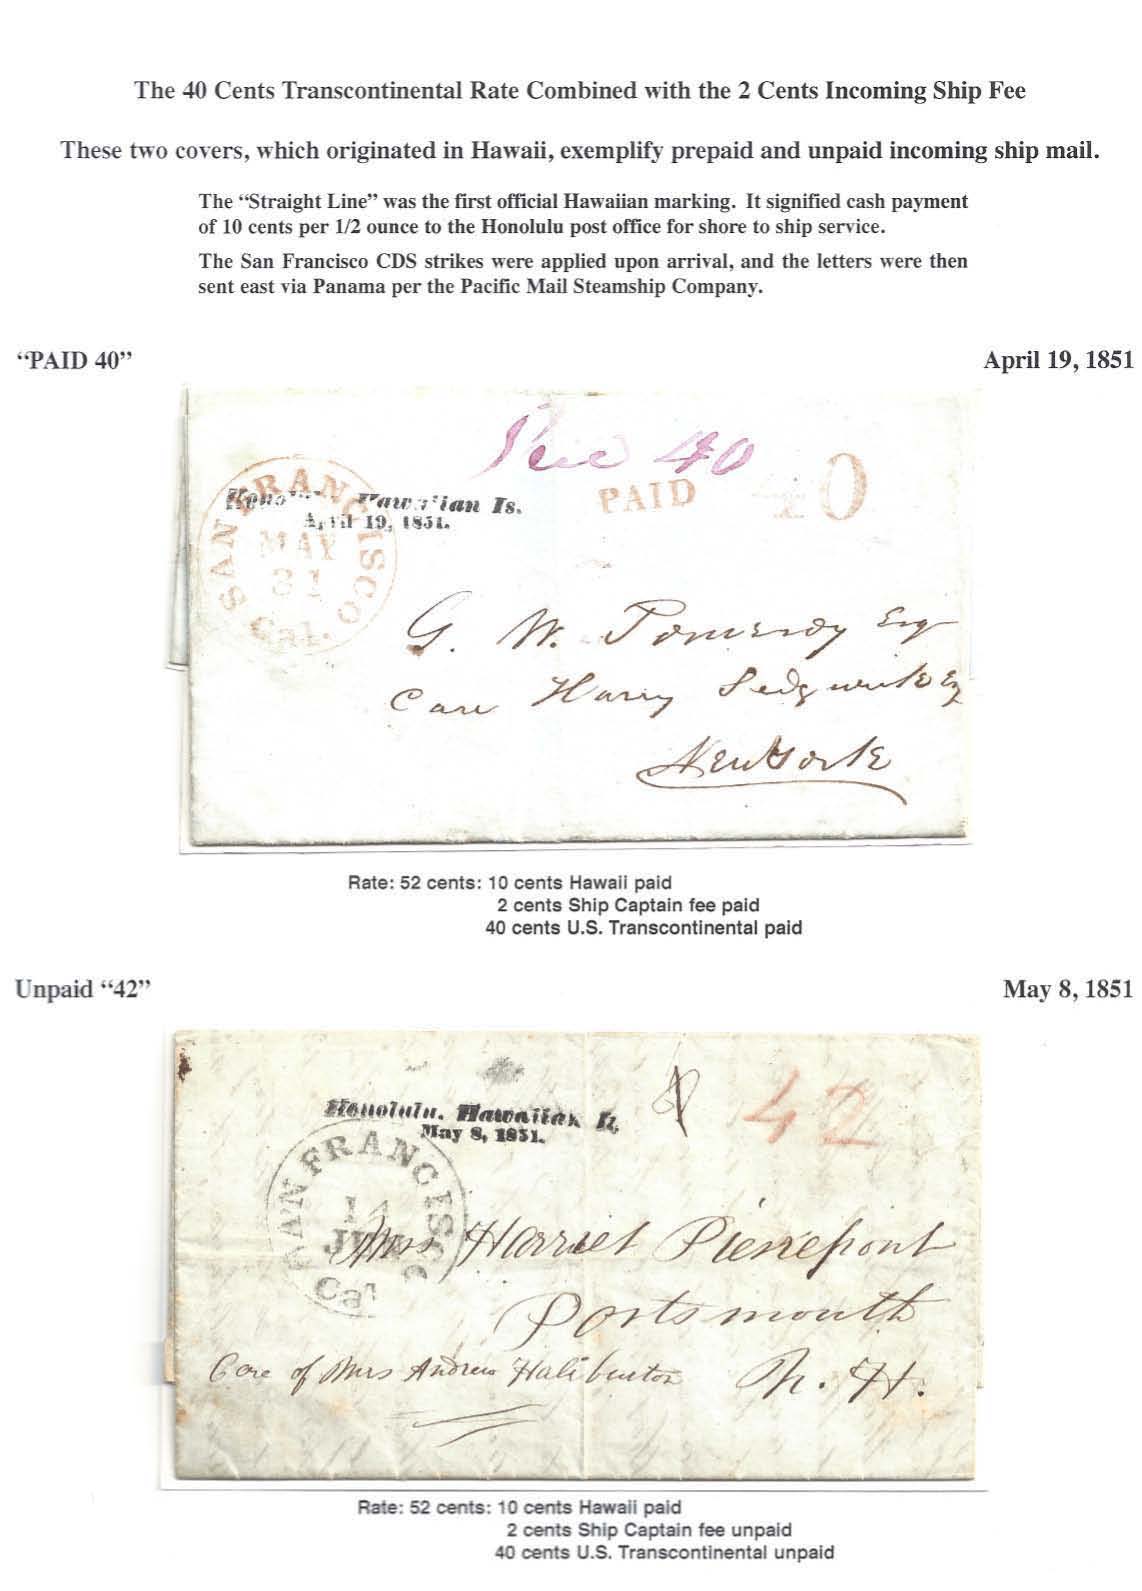 The 40 Cents Transcontinental Rate Combined with the 2 Cents Incoming Ship Fee
These two covers, which originated in Hawaii, exemplify prepaid and unpaid incoming ship mail.
The “Straight Line” was the first official Hawaiian marking. It signified cash payment
of 10 cents per 1/2 ounce to the Honolulu post office for shore to ship service.
The San Francisco CDS strikes were applied upon arrival, and the letters were then
sent east via Panama per the Pacific Mail Steamship Company.
“PAID 40”
April 19, 1851
Paid 40
PAID 40
Hawaiian Is.
April 19, 1851.
SAN FRANCISCO
MAY
31
Cal.
G. W. Pomeroy Esq
Care Harry Sedgwick Esq
New York
Rate: 52 cents: 10 cents Hawaii paid
2 cents Ship Captain fee paid
40 cents U.S. Transcontinental paid
Unpaid “42”
May 8, 1851
42
Honolulu. Hawaiian Is.
May 8, 1851.
SAN FRANCISCO
Cal
Harriet Pierrepont
Portsmouth
Care of Mrs Andrew Haliburton N. H.
Rate: 52 cents: 10 cents Hawaii paid
2 cents Ship Captain fee unpaid
40 cents U.S. Transcontinental unpaid